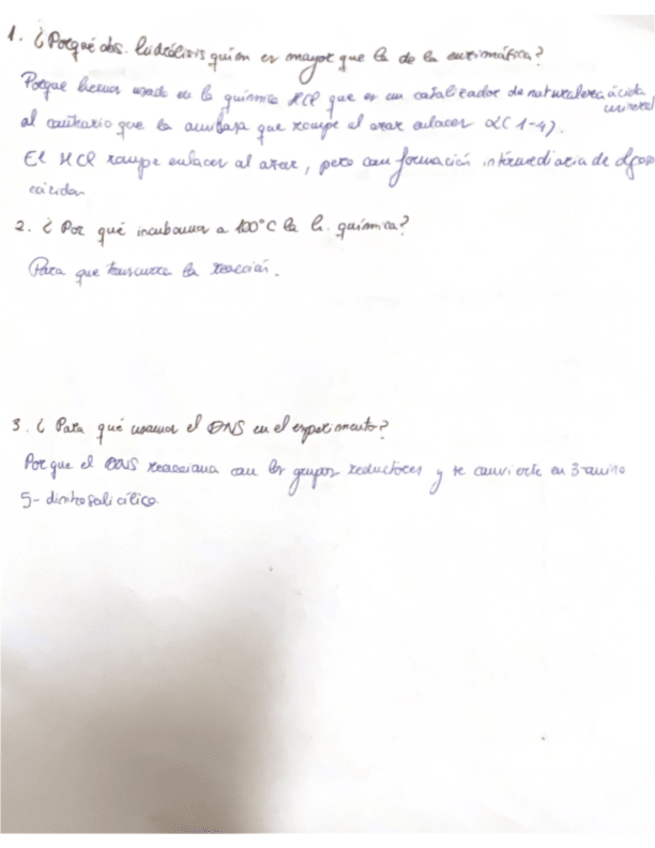 1. ¿Porqué abs. hidrólisis quím en mayor que la de la enzimática?
Porque hemos usado en la química HCl que es un catalizador de naturaleza ácida
mineral
al contrario que la amilasa que rompe al azar enlaces α(1-4).
El HCl rompe enlaces al azar, pero con formación intermediaria de
2. ¿Por qué incubamos a 100°C la h. química?
Para que transcurra la reacción.
3. ¿Para qué usamos el DNS en el experimento?
Porque el DNS reacciona con los grupos reductores y se convierte en 3-amino
5-dinitrosalicílico.